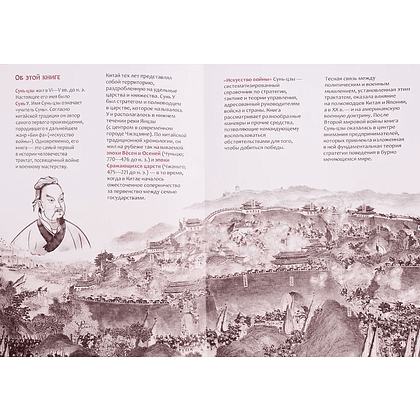 Об этой книге
Сунь-цзы жил в VI—V вв. до н. э.
Настоящее его имя было
Сунь У. Имя Сунь-цзы означает
«учитель Сунь». Согласно
китайской традиции он автор
самого первого произведения,
породившего в дальнейшем
жанр «бин фа» («искусство
войны»). Одновременно, его
книга — и самый первый
в истории человечества
трактат, посвящённый войне
и военному мастерству.
Китай тех лет представлял
собой территорию,
раздробленную на удельные
царства и княжества. Сунь У
был стратегом и полководцем
в царстве, которое называлось
У и располагалось в нижнем
течении реки Янцзы
(с центром в современном
городе Чжэцзяне). По
китайской традиционной
хронологии, он
жил на рубеже так называемых
эпохи Вёсен и Осеней (Чуньцю;
770—476 до н. э.) и эпохи
Сражающихся царств (Чжаньго;
475—221 до н. э.) — в то время,
когда в Китае началось
ожесточенное соперничество
за первенство между семью
государствами.
«Искусство войны» Сунь-цзы —
систематизированный
справочник по стратегии,
тактике и теории управления,
адресованный руководителям
войска и страны. Книга
рассматривает разнообразные
маневры и прочие средства,
позволяющие командующему
воспользоваться
обстоятельствами для того,
чтобы добиться победы.
Тесная связь между
политическим и военным
мышлением, установленная этим
трактатом, оказала влияние
на полководцев Китая и Японии,
а в XX в. — и на американскую
военную доктрину. После
Второй мировой войны книга
Сунь-цзы оказалась в центре
внимания предпринимателей,
которых в ней привлекла
в ней фундаментальная теория
стратегии поведения в бурно
меняющемся мире.